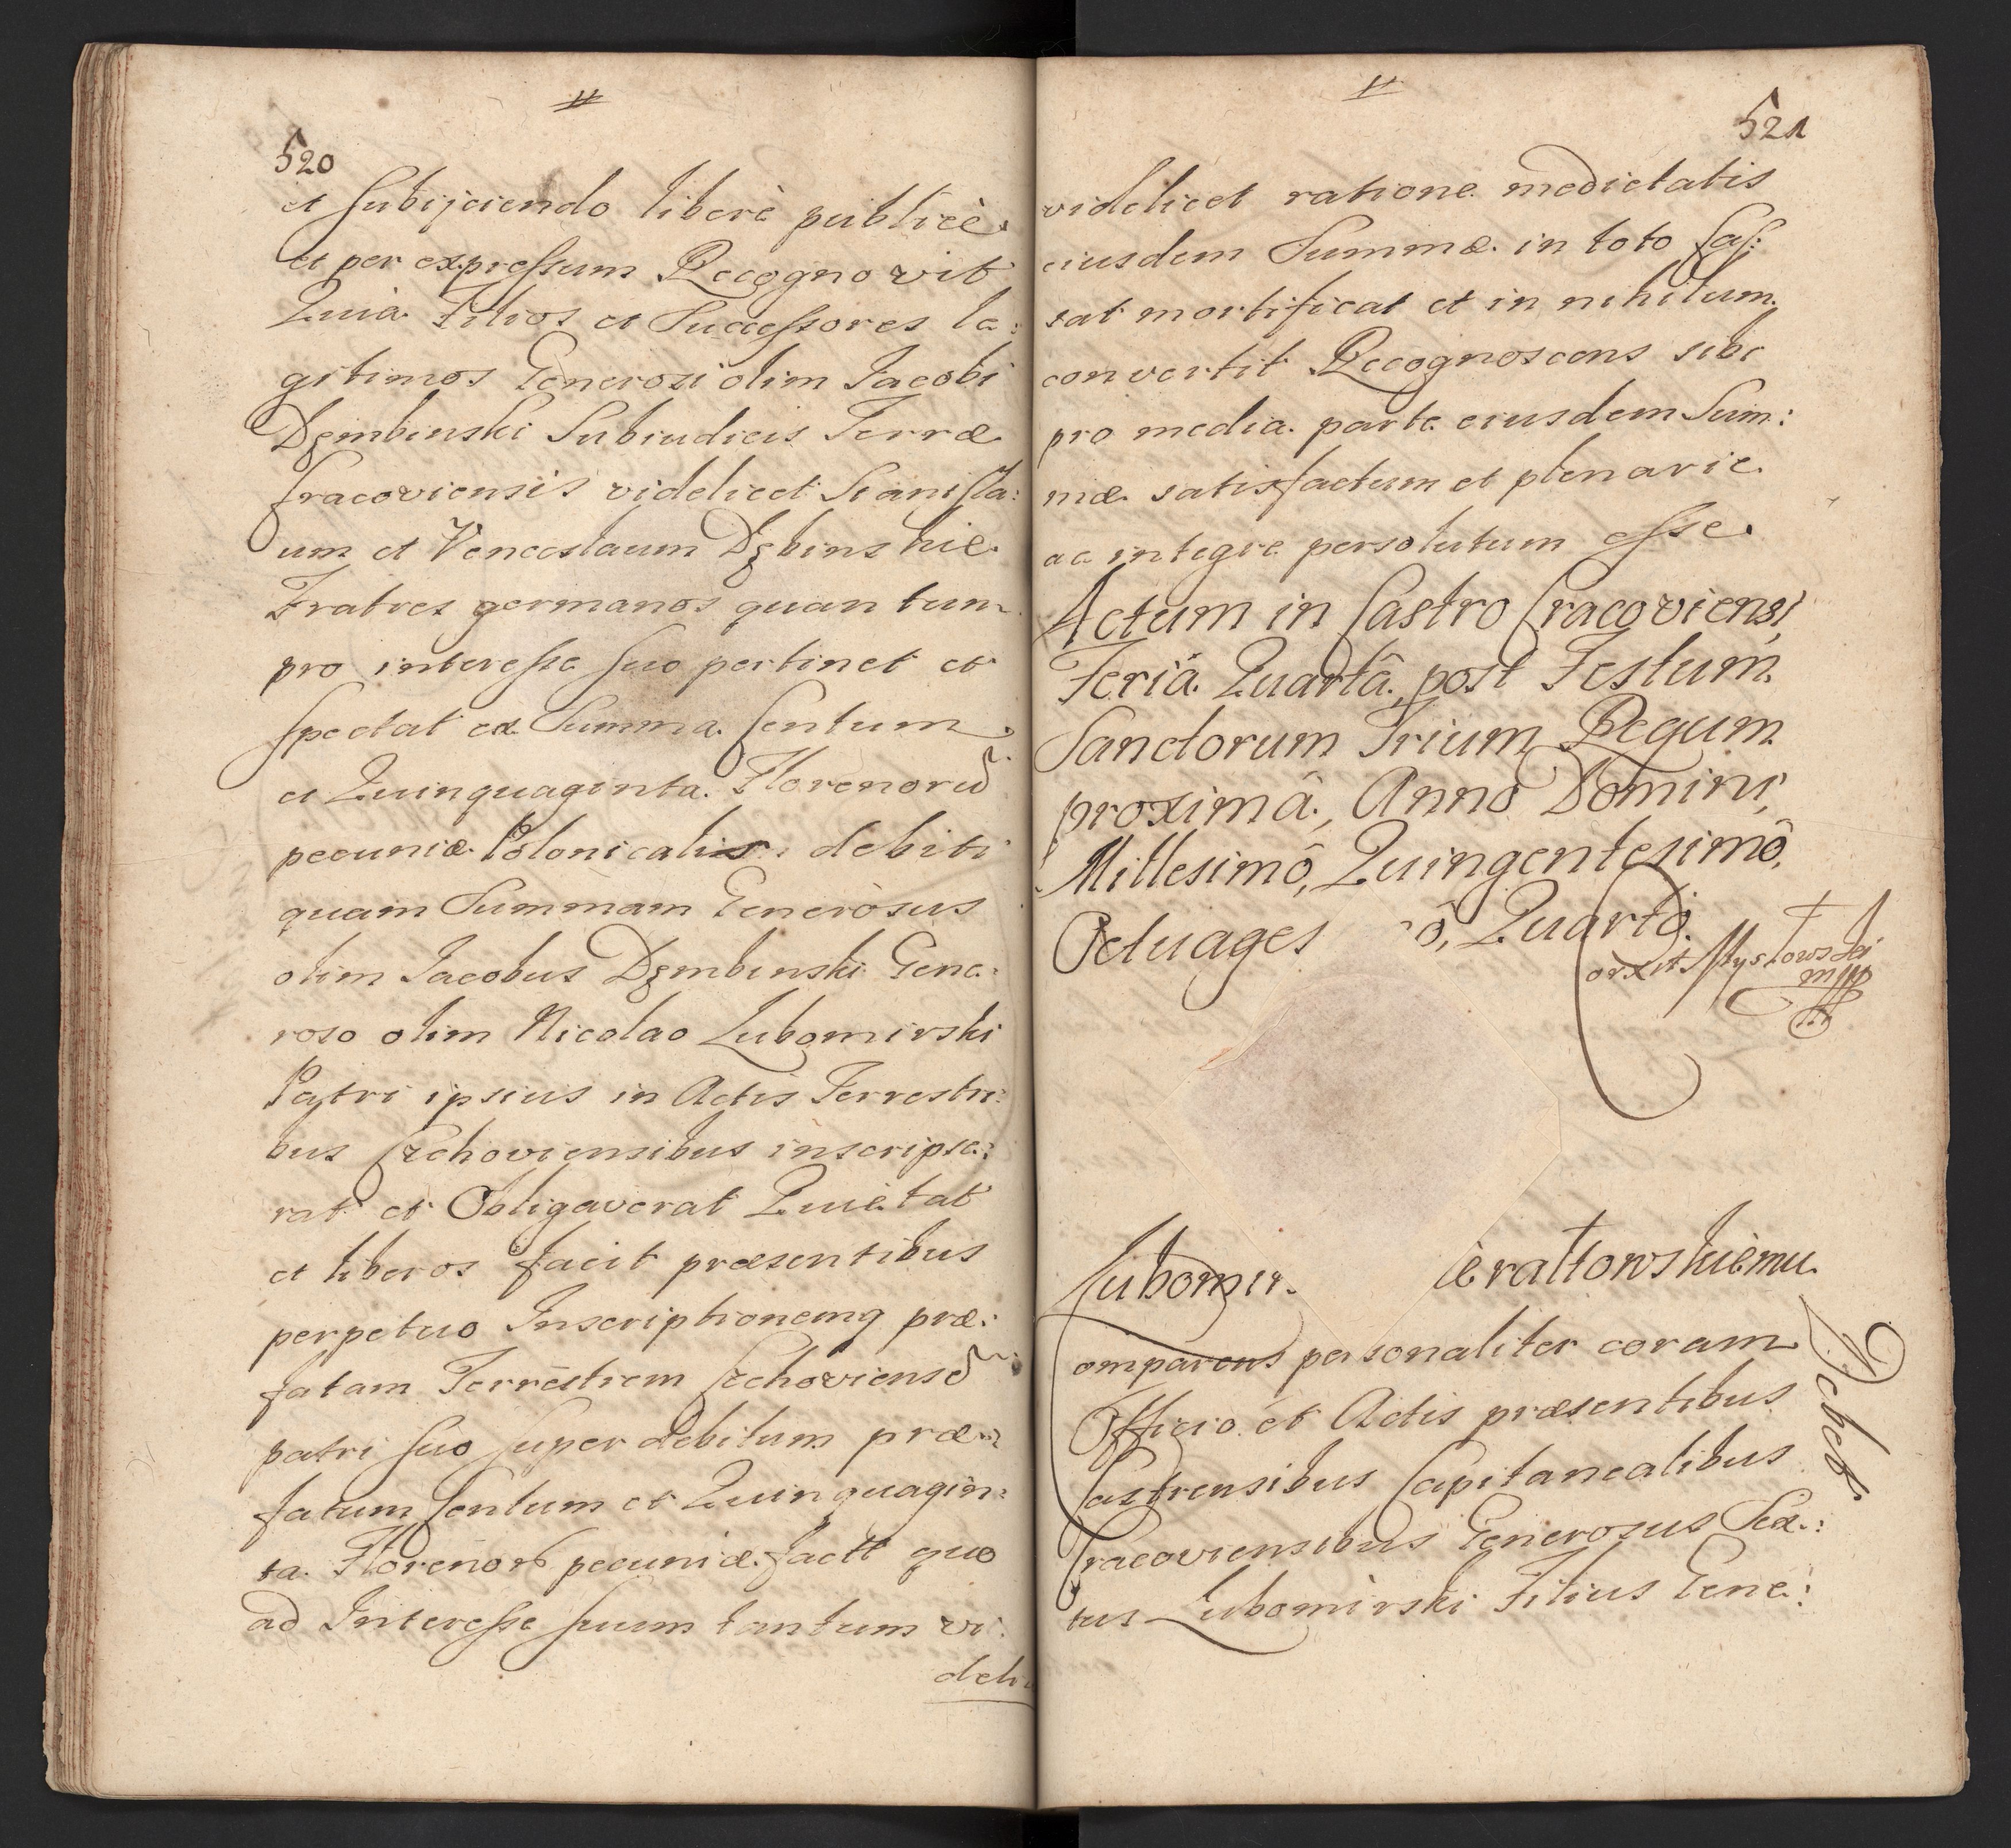 520
et subijciendo liberè publicè
et per expressum Recognovit
Quia Filios et Successores le:
gitimos Generosi olim Jacobi
Dęmbinski Subiudicis Terræ
Cracoviensis videlicet Stanisla:
um et Venceslaum Dębinskie
Fratres germanos quantum
pro interesse suo pertinet et
spectat ex Summa Centum
et Quinquaginta Florenorũ
pecuniæ Polonicalis debiti
quam Summam Generosus
olim Jacobus Dęmbinski Gene:
roso olim Nicolao Lubomirski
Patri ipsius in Actis Terrestri:
bus Czchoviensibus inscripse:
rat et Obligaverat Quietat
et liberos facit præsentibus
perpetuo Inscriptionemq præ:
fatam Terrestrem Czchoviensẽ
patri suo super debitum præ:
fatum Centum et Quinquagin:
ta Florenor pecuniæ factt quo
ad Interesse suum tantum vi:
deli
521
videlicet ratione medietatis
eiusdem Summæ in toto Cas:
sat mortificat et in nihilum
convertit Recognoscens sibi
pro media parte eiusdem Sum:
mæ satisfactum et plenarie
ac integre persolutum esse
Actum in Castro Cracoviensi,
Feriâ Quartâ, post Festum
Sanctorum Trium Regum
proximâ, Anno Domini,
Millesimô, Quingentesimô,
Octuages ô, Quartô.
mpp
Lubomir. erattowskiemu
omparens personaliter coram
Officio et Actis præsentibus
Castrensibus Capitanealibus
Cracoviensibus Generosus Sex:
tus Lubomirski Filius Gene:
Debet